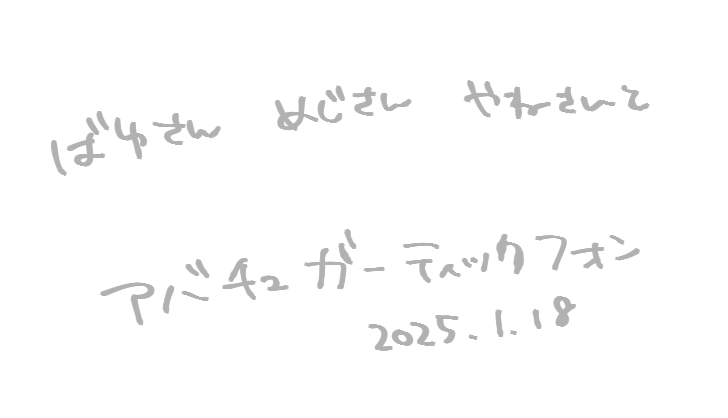 ばゆさん めじさん やねさんと
アバチュガーティックフォン
2025.1.18